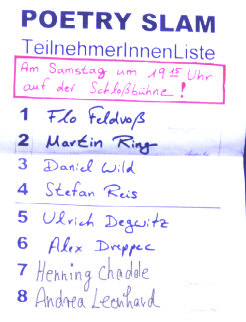 POETRY SLAM
TeilnehmerInnenListe
Am Samstag um 19 15 Uhr
auf der Schloßbühne!
1 Flo Feldvoß
2 Martin Ring
3 Daniel Wild
4 Stefan Reis
5 Ulrich Degwitz
6 Alex Dreppec
7 Henning Chadde
8 Andrea Leonhard